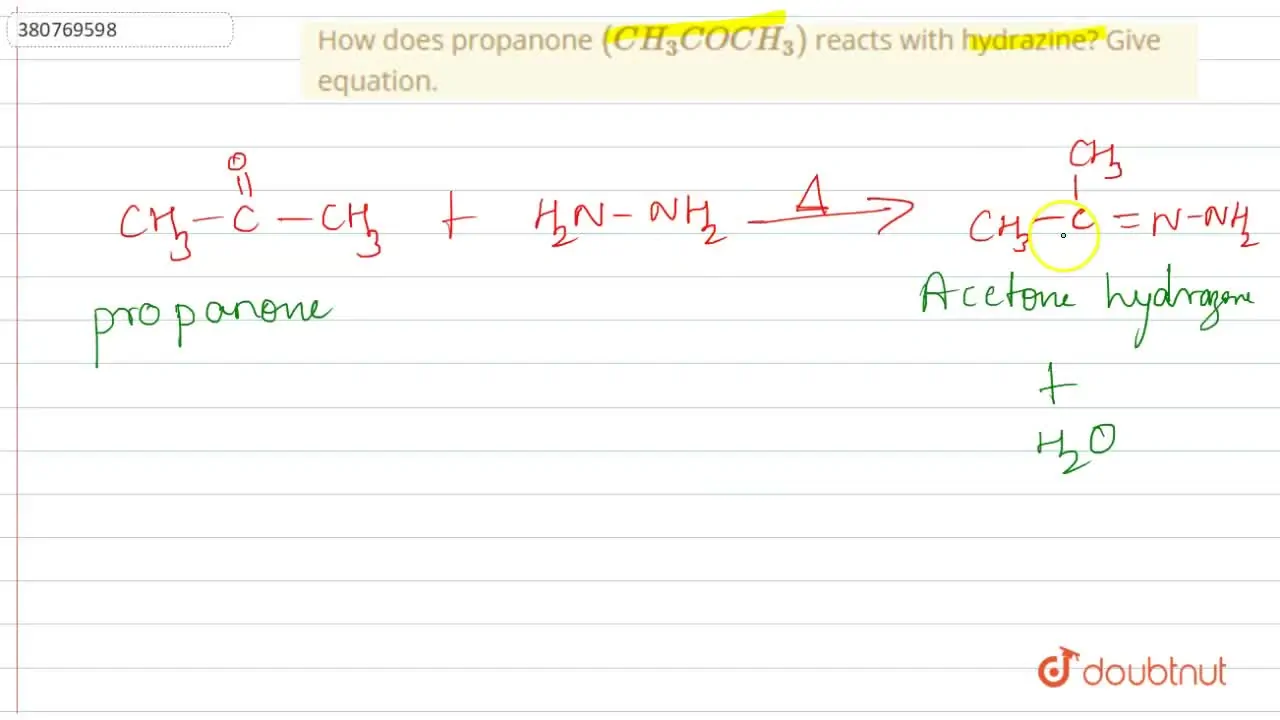 380769598
How does propanone (CH₃COCH₃) reacts with hydrazine? Give
equation.
CH₃
O
CH₃ — C — CH₃ + H₂N — NH₂ —Δ→ CH₃ — C = N — NH₂
propanone Acetone hydrazone
+
H₂O
doubtnut